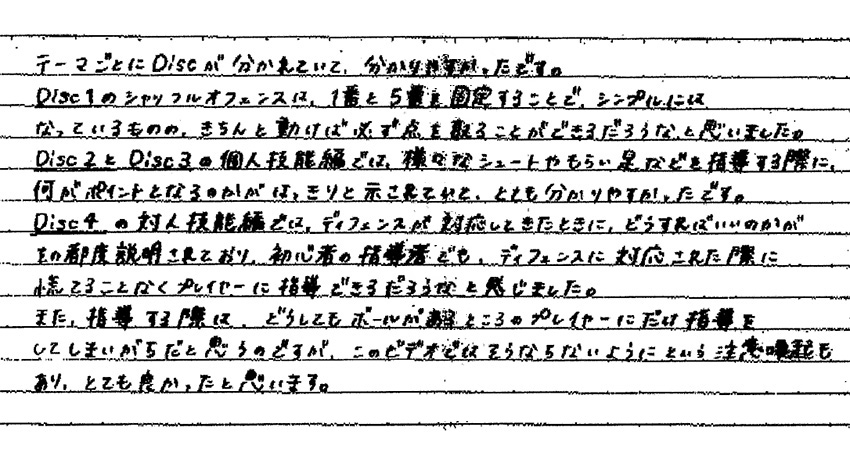 テーマごとにDiscが分かれていて、分かりやすかったです。
Disc1のシャッフルオフェンスは、1番と5番を固定することで、シンプルには
なっているものの、きちんと動けば必ず点を取ることができるだろうなと思いました。
Disc2とDisc3の個人技能編では、様々なシュートやもらい足などを指導する際に、
何がポイントとなるのかがはっきりと示されていて、とても分かりやすかったです。
Disc4の対人技能編では、ディフェンスが対応してきたときに、どうすればいいのかが
その都度説明されており、初心者の指導者でも、ディフェンスに対応された際に
慌てることなくプレイヤーに指導できるだろうなと感じました。
また、指導する際は、どうしてもボールがあるところのプレイヤーにだけ指導を
してしまいがちだと思うのですが、このビデオではそうならないようにという注意喚起も
あり、とても良かったと思います。